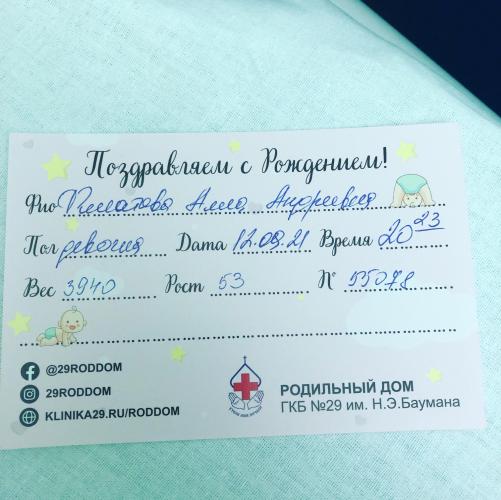 Поздравляем с Рождением!
Фио Алла Андреевна
Пол девочка Дата 12.09.21 Время 20 23
Вес 3940 Рост 53 № 55078
@29RODDOM
29RODDOM
KLINIKA29.RU/RODDOM
РОДИЛЬНЫЙ ДОМ
ГКБ №29 им. Н.Э.Баумана